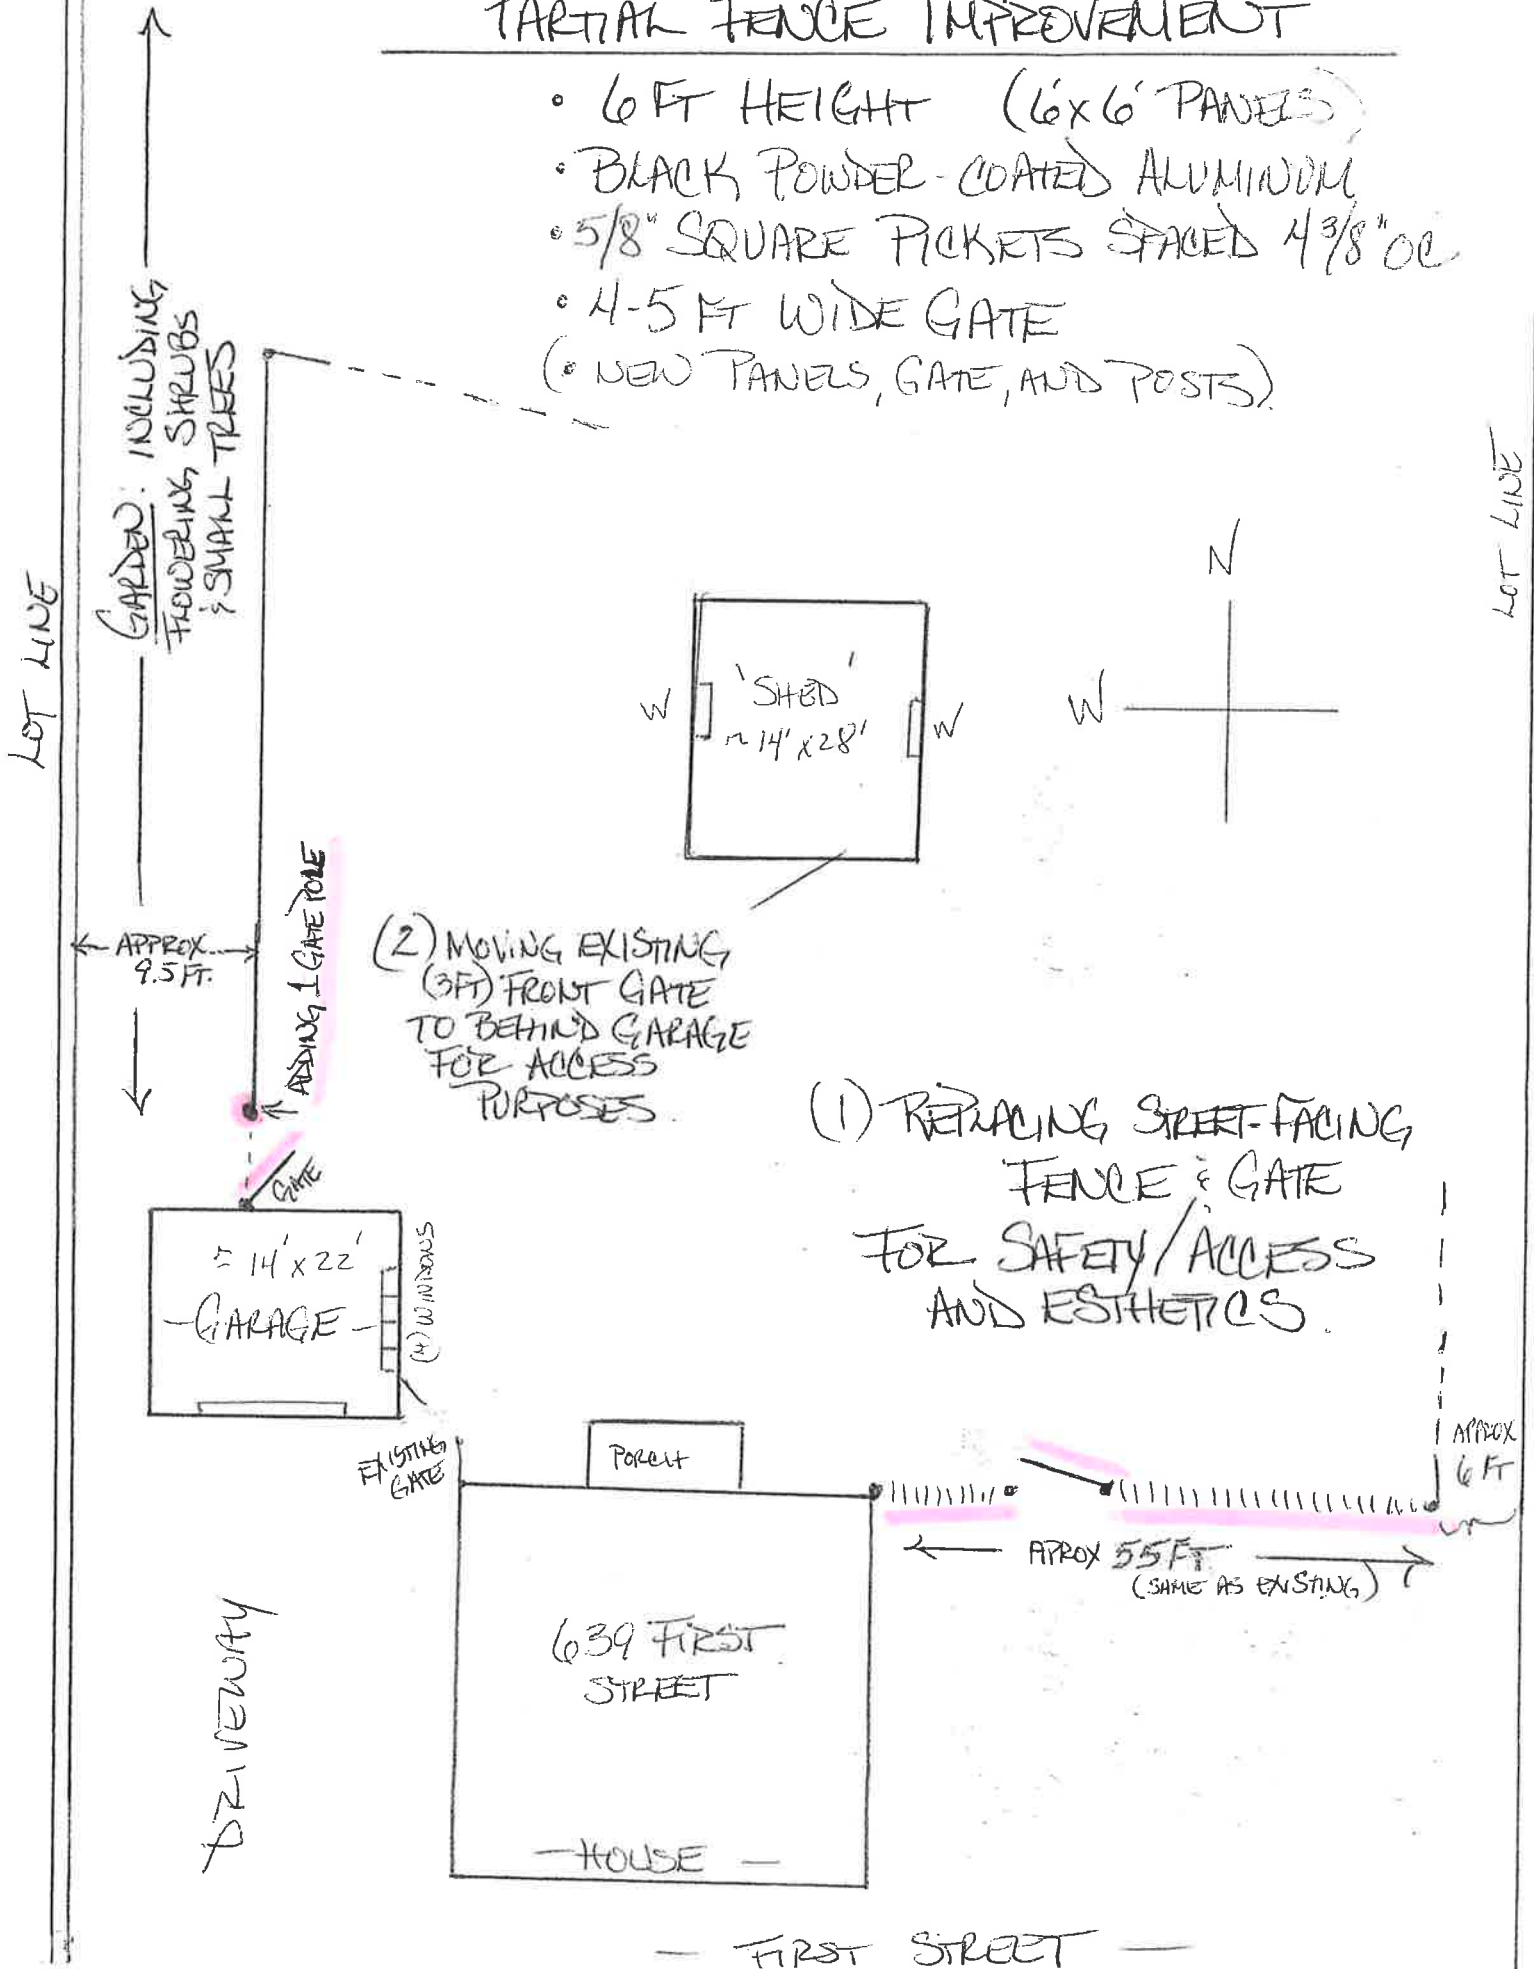 PARTIAL FENCE IMPROVEMENT
• 6 FT HEIGHT (6'x6' PANELS)
• BLACK POWDER-COATED ALUMINUM
• 5/8" SQUARE PICKETS SPACED 4 3/8" OC
• 4-5 FT WIDE GATE
(• NEW PANELS, GATE, AND POSTS)
GARDEN: INCLUDING
FLOWERING SHRUBS
& SMALL TREES
LOT LINE
LOT LINE
N
W
W
'SHED'
~ 14' x 28'
W
APPROX
9.5 FT.
ADDING 1 GATE POLE
(2) MOVING EXISTING
(3FT) FRONT GATE
TO BEHIND GARAGE
FOR ACCESS
PURPOSES.
(1) REPLACING STREET-FACING
FENCE & GATE
FOR SAFETY/ACCESS
AND ESTHETICS.
GATE
≈ 14' x 22'
- GARAGE -
(4) WINDOWS
EXISTING
GATE
PORCH
APPROX
6 FT
APROX 55 FT.
(SAME AS EXISTING)
639 FIRST
STREET
- HOUSE -
DRIVEWAY
- FIRST STREET -